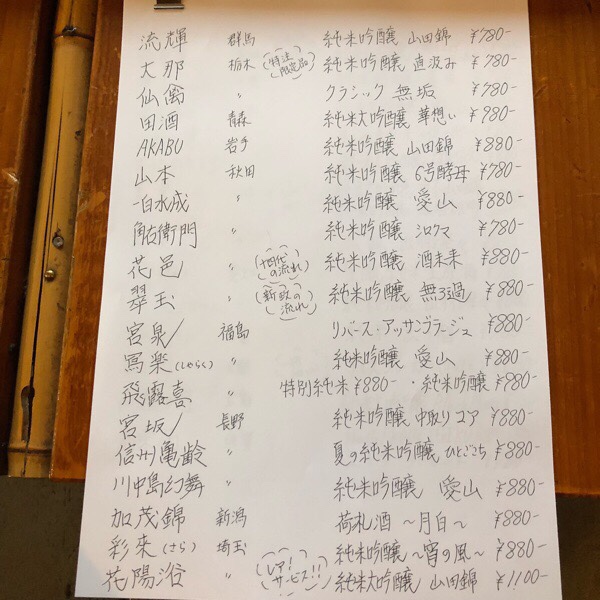 流輝 群馬 純米吟醸 山田錦 ¥780-
大那 栃木 (特注限定品) 純米吟醸 直汲み ¥780-
仙禽 〃 クラシック 無垢 ¥780-
田酒 青森 純米大吟醸 華想い ¥980-
AKABU 岩手 純米吟醸 山田錦 ¥880-
山本 秋田 純米吟醸 6号酵母 ¥780-
一白水成 〃 純米吟醸 愛山 ¥880-
角右衛門 〃 純米吟醸 シロクマ ¥780-
花邑 〃 (十四代の流れ) 純米吟醸 酒未来 ¥880-
翠玉 〃 (新政の流れ) 純米吟醸 無ろ過 ¥880-
宮泉 福島 リバース・アッサンブラージュ ¥880-
寫楽(しゃらく) 〃 純米吟醸 愛山 ¥880-
飛露喜 〃 特別純米 ¥880- ・純米吟醸 ¥980-
宮坂 長野 純米吟醸 中取り コア ¥880-
信州亀齢 〃 夏の純米吟醸 ひとごこち ¥880-
川中島幻舞 〃 純米吟醸 愛山 ¥880-
加茂錦 新潟 荷札酒 〜月白〜 ¥880-
彩來(さら) 埼玉 純米吟醸 〜宵の風〜 ¥880-
花陽浴 〃 (レア!サービス!!) 純米大吟醸 山田錦 ¥1100-